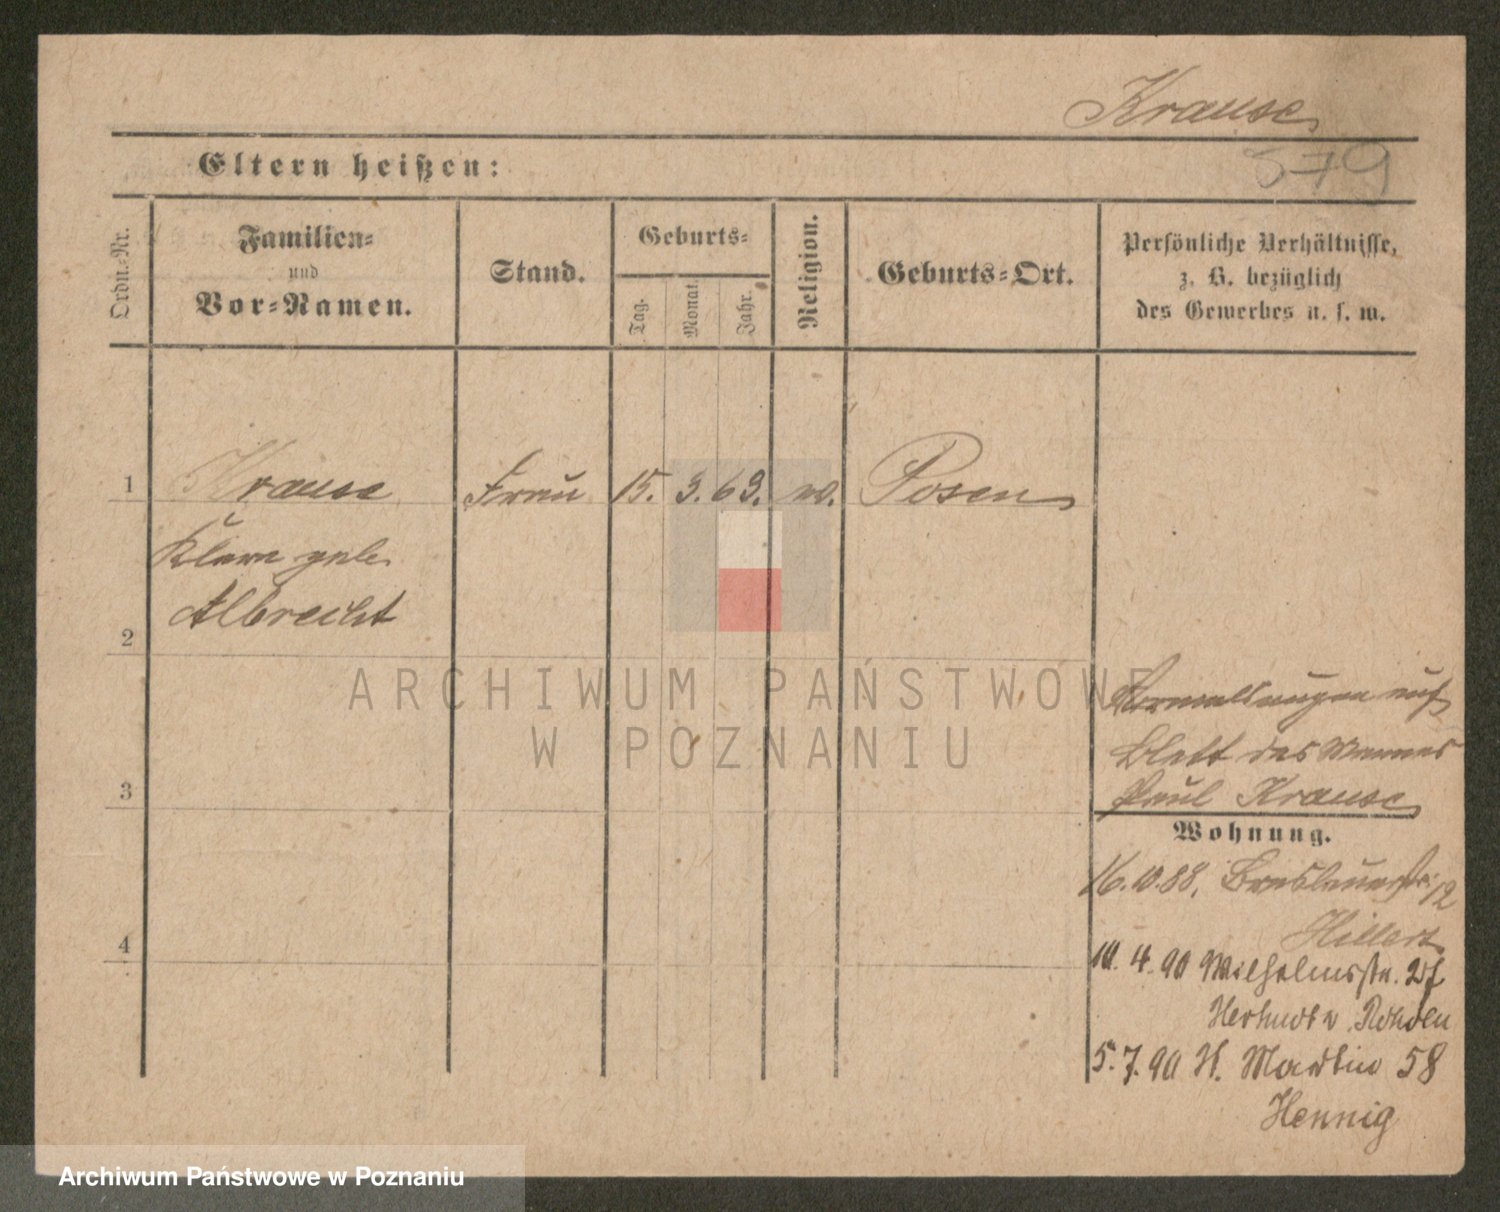 Krause
579
Eltern heißen:
Ordn.-Nr.
Familien-
und
Vor-Namen.
Stand.
Geburts-
Tag.
Monat.
Jahr.
Religion.
Geburts-Ort.
Persönliche Verhältnisse,
z. B. bezüglich
des Gewerbes u. s. w.
1 Krause Frau 15. 3. 63. Posen
Klara geb.
Albrecht
2
ARCHIWUM PAŃSTWOWE
W POZNANIU
auf
Blatt des Mannes
3 Paul Krause
Wohnung.
16.10.88. Breslauerstr. 12
Hillert
4
10. 4. 90 Wilhelmsstr.
5. 7. 90 St. Martin 58
Hennig
Archiwum Państwowe w Poznaniu